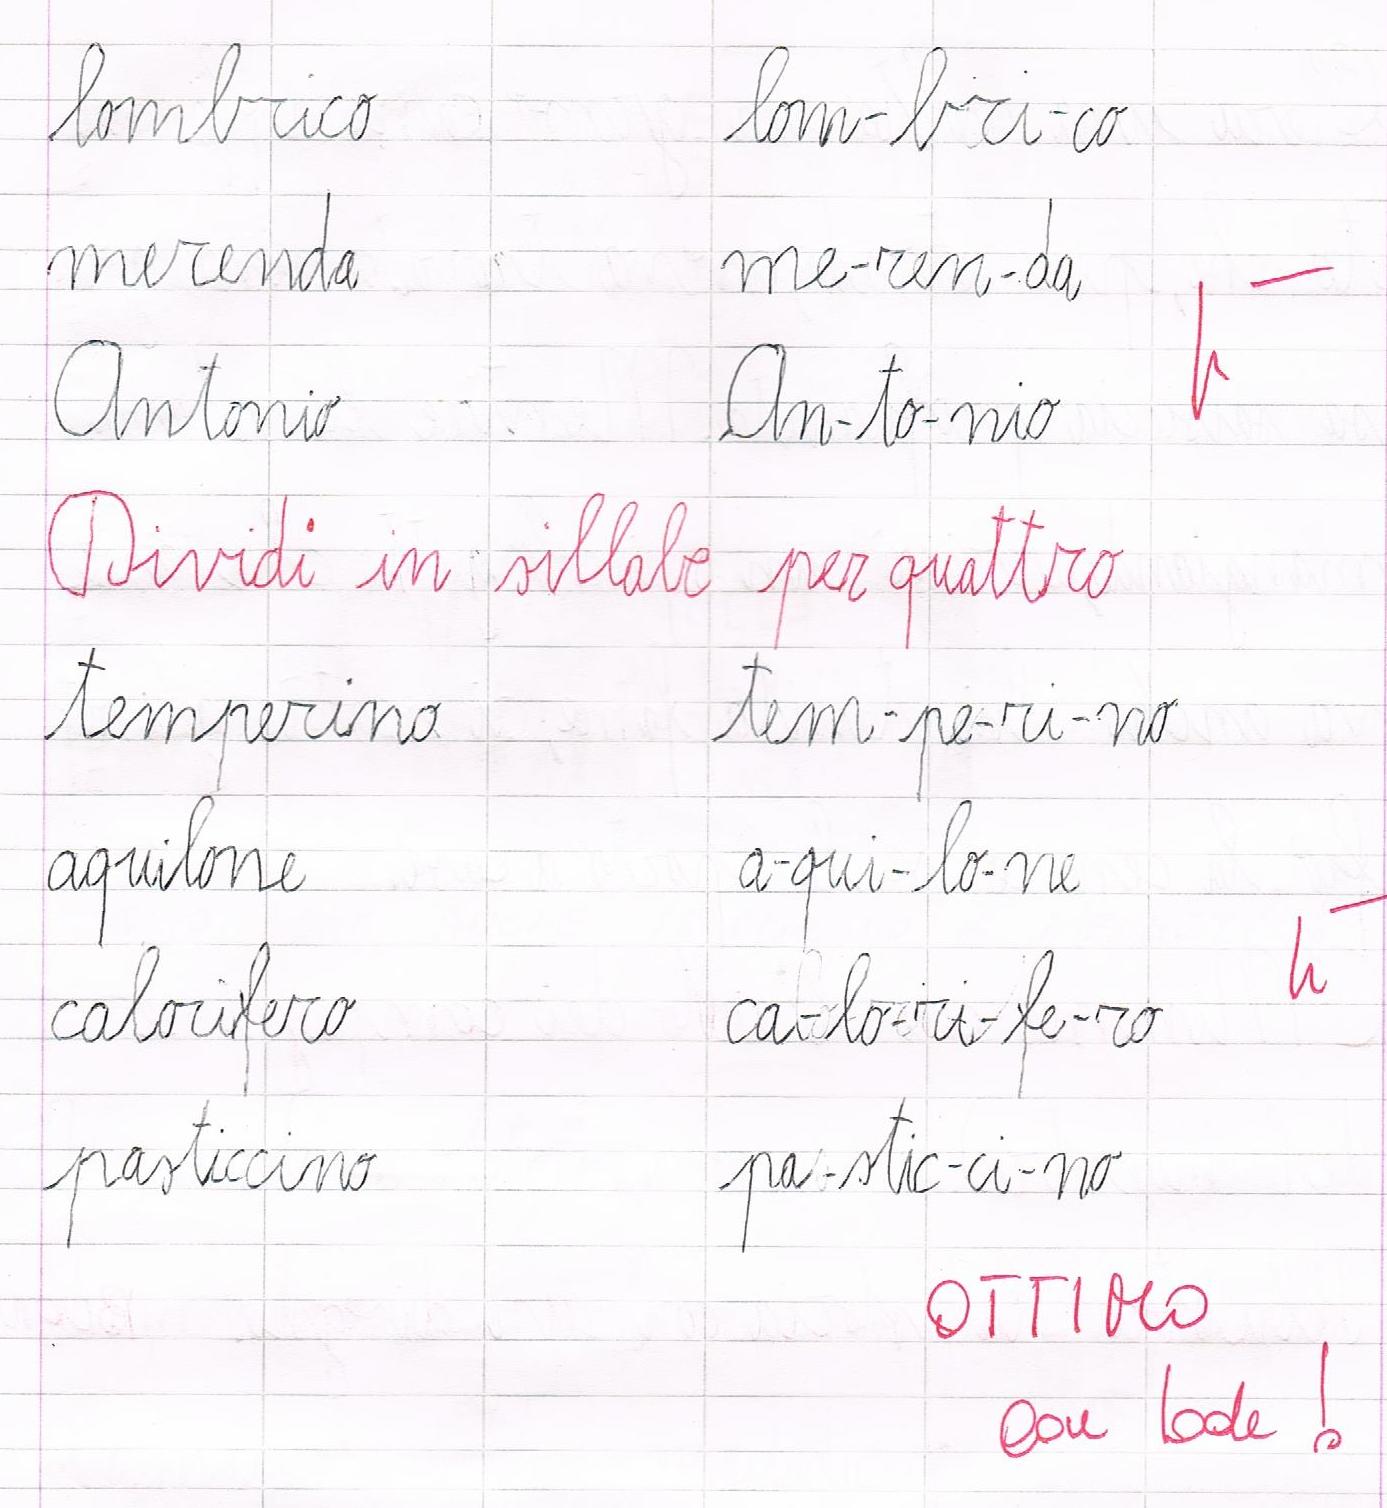 lombrico lom-bri-co
merenda me-ren-da
Antonio An-to-nio
Dividi in sillabe per quattro
temperino tem-pe-ri-no
aquilone a-qui-lo-ne
calorifero ca-lo-ri-fe-ro
pasticcino pa-stic-ci-no
OTTIMO
con lode!